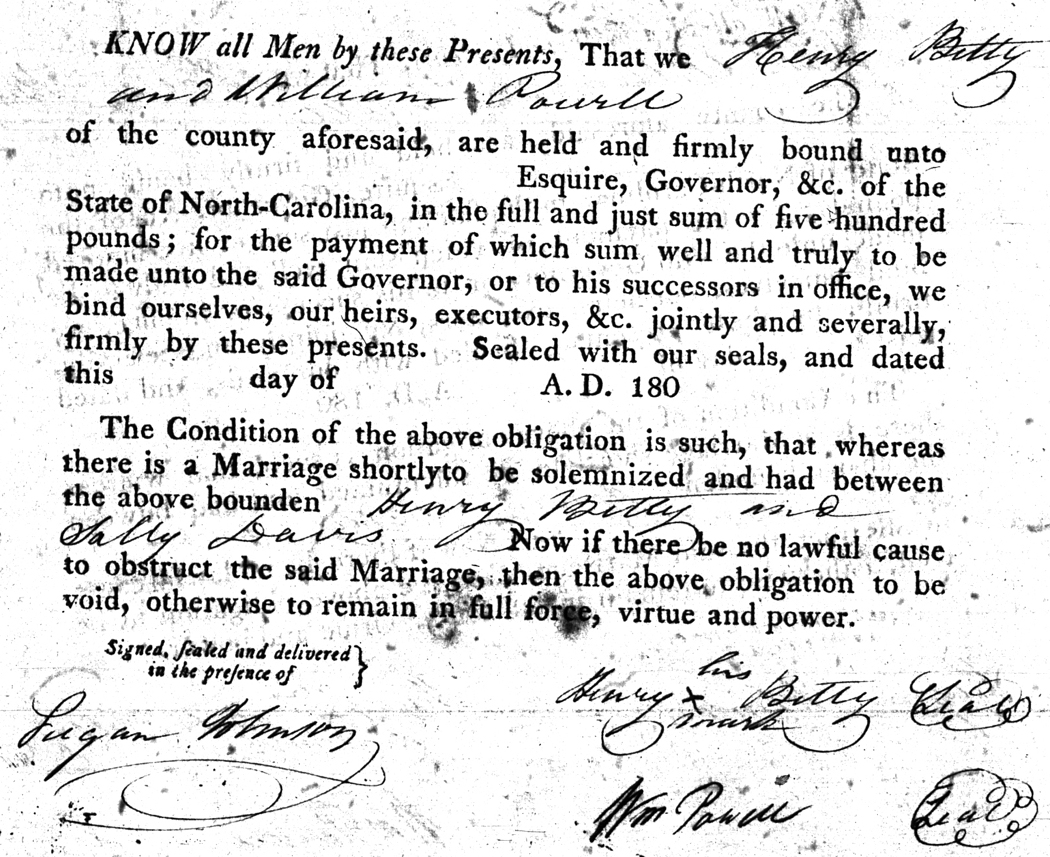 KNOW all Men by these Presents, That we Henry Betty
and William Powell
of the county aforesaid, are held and firmly bound unto
Esquire, Governor, &c. of the
State of North-Carolina, in the full and just sum of five hundred
pounds; for the payment of which sum well and truly to be
made unto the said Governor, or to his successors in office, we
bind ourselves, our heirs, executors, &c. jointly and severally,
firmly by these presents. Sealed with our seals, and dated
this day of A. D. 180
The Condition of the above obligation is such, that whereas
there is a Marriage shortly to be solemnized and had between
the above bounden Henry Betty and
Sally Davis Now if there be no lawful cause
to obstruct the said Marriage, then the above obligation to be
void, otherwise to remain in full force, virtue and power.
Signed, ſealed and delivered
in the preſence of
his
Henry x Betty Seal
mark
Johnson
Wm Powell Seal